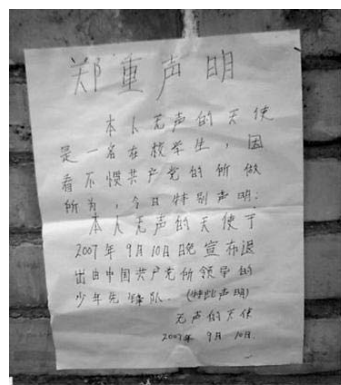 郑重声明
本人无声的天使
是一名在校学生，因
看不惯共产党的所做
所为，今日特别声明：
本人无声的天使于
2007年9月10日晚宣布退
出由中国共产党所领导的
少年先锋队.（特此声明）
无声的天使
2007年 9月 10日